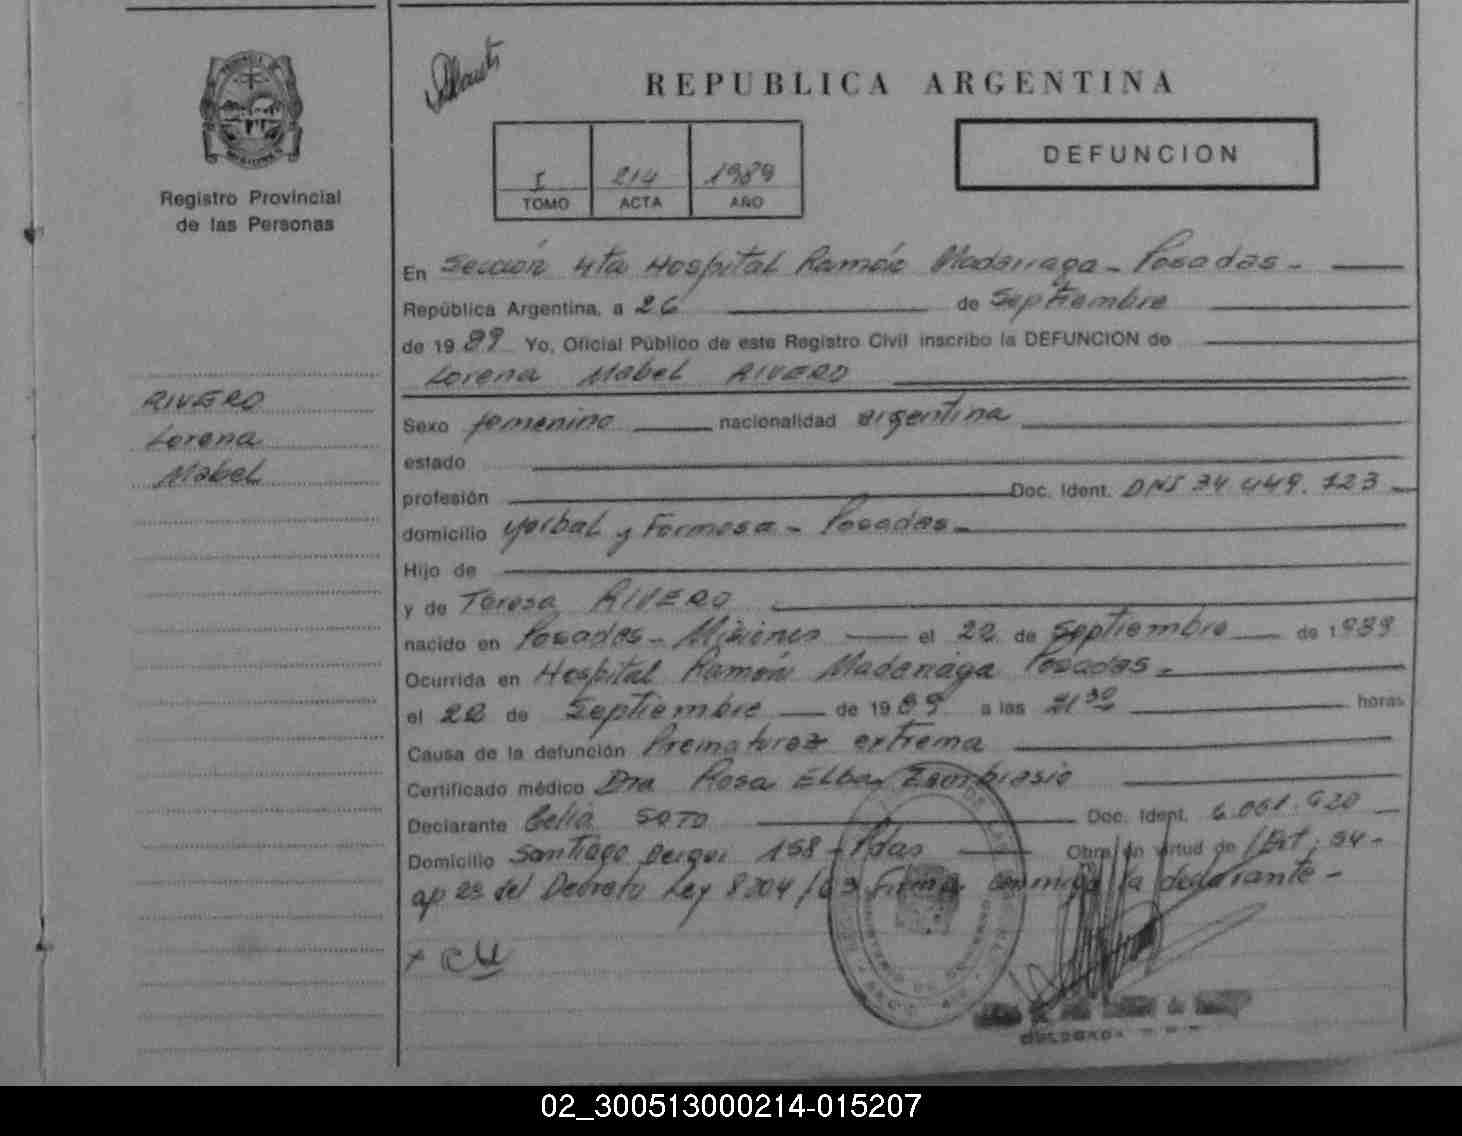 REPUBLICA ARGENTINA
DEFUNCION
I 214 1989
TOMO ACTA AÑO
Registro Provincial
de las Personas
RIVERO
Lorena
Mabel
En Sección 4ta Hospital Ramón Madariaga - Posadas -
República Argentina, a 26 de Septiembre
de 1989 Yo, Oficial Público de este Registro Civil inscribo la DEFUNCION de
Lorena Mabel RIVERO
Sexo femenino nacionalidad argentina
estado
profesión Doc. Ident. DNI 34.449.123
domicilio Yerbal y Formosa - Posadas -
Hijo de
y de Teresa RIVERO
nacido en Posadas - Misiones el 22 de Septiembre de 1989
Ocurrida en Hospital Ramón Madariaga Posadas -
el 22 de Septiembre de 1989 a las 21 30 horas
Causa de la defunción Prematurez extrema
Certificado médico Dra Rosa Elba Zambiasio
Declarante Celia SOTO Doc. Ident. 6.061.920
Domicilio Santiago Derqui 158 - Pdas Obra en virtud de Art. 54 -
ap 2º del Decreto Ley 8204/63 Firma conmigo la declarante -
02_300513000214-015207